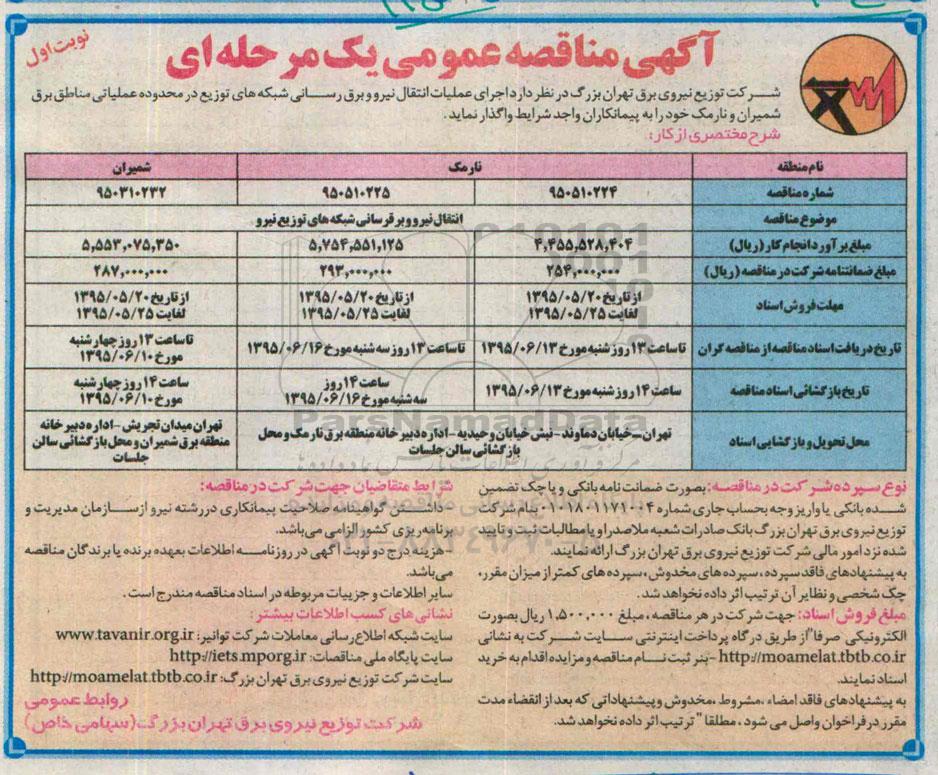 نوبت اول
آگهی مناقصه عمومی یک مرحله ای
شرکت توزیع نیروی برق تهران بزرگ در نظر دارد اجرای عملیات انتقال نیرو و برق رسانی شبکه های توزیع در محدوده عملیاتی مناطق برق
شمیران و نارمک خود را به پیمانکاران واجد شرایط واگذار نماید.
شرح مختصری از کار:
نام منطقه نارمک شمیران
شماره مناقصه ۹۵۰۵۱۰۲۲۴ ۹۵۰۵۱۰۲۲۵ ۹۵۰۳۱۰۲۳۲
موضوع مناقصه انتقال نیرو و برقرسانی شبکه های توزیع نیرو
مبلغ برآورد انجام کار (ریال) ۴,۴۵۵,۵۲۸,۴۰۴ ۵,۷۵۴,۵۵۱,۱۲۵ ۵,۵۵۳,۰۷۵,۳۵۰
مبلغ ضمانتنامه شرکت در مناقصه (ریال) ۲۵۴,۰۰۰,۰۰۰ ۲۹۳,۰۰۰,۰۰۰ ۲۸۷,۰۰۰,۰۰۰
مهلت فروش اسناد از تاریخ ۱۳۹۵/۰۵/۲۰ از تاریخ ۱۳۹۵/۰۵/۲۰ از تاریخ ۱۳۹۵/۰۵/۲۰
لغایت ۱۳۹۵/۰۵/۲۵ لغایت ۱۳۹۵/۰۵/۲۵ لغایت ۱۳۹۵/۰۵/۲۵
تاریخ دریافت اسناد مناقصه از مناقصه گران تا ساعت ۱۳ روز شنبه مورخ ۱۳۹۵/۰۶/۱۳ تا ساعت ۱۳ روز سه شنبه مورخ ۱۳۹۵/۰۶/۱۶ تا ساعت ۱۳ روز چهارشنبه
مورخ ۱۳۹۵/۰۶/۱۰
تاریخ بازگشائی اسناد مناقصه ساعت ۱۴ روز شنبه مورخ ۱۳۹۵/۰۶/۱۳ ساعت ۱۴ روز ساعت ۱۴ روز چهارشنبه
سه شنبه مورخ ۱۳۹۵/۰۶/۱۶ مورخ ۱۳۹۵/۰۶/۱۰
محل تحویل و بازگشایی اسناد تهران-خیابان دماوند-نبش خیابان وحیدیه-اداره دبیرخانه منطقه برق نارمک و محل
بازگشائی سالن جلسات
تهران میدان تجریش-اداره دبیرخانه
منطقه برق شمیران و محل بازگشائی سالن
جلسات
ParsNamadData
نوع سپرده شرکت در مناقصه: بصورت ضمانت نامه بانکی و یا چک تضمین
شده بانکی یا واریز وجه بحساب جاری شماره ۰۱۰۱۸۰۱۱۷۱۰۰۴ بنام شرکت
توزیع نیروی برق تهران بزرگ بانک صادرات شعبه ملاصدرا و یا مطالبات ثبت و تایید
شده نزد امور مالی شرکت توزیع نیروی برق تهران بزرگ ارائه نمایند.
به پیشنهادهای فاقد سپرده، سپرده های مخدوش، سپرده های کمتر از میزان مقرر،
چک شخصی و نظایر آن ترتیب اثر داده نخواهد شد.
مبلغ فروش اسناد: جهت شرکت در هر مناقصه، مبلغ ۱,۵۰۰,۰۰۰ ریال بصورت
الکترونیکی صرفا" از طریق درگاه پرداخت اینترنتی سایت شرکت به نشانی
http://moamelat.tbtb.co.ir -بنر ثبت نام مناقصه و مزایده اقدام به خرید
اسناد نمایند.
به پیشنهادهای فاقد امضاء، مشروط، مخدوش و پیشنهاداتی که بعد از انقضاء مدت
مقرر در فراخوان واصل می شود، مطلقا" ترتیب اثر داده نخواهد شد.
شرایط متقاضیان جهت شرکت در مناقصه:
- داشتن گواهینامه صلاحیت پیمانکاری در رشته نیرو از سازمان مدیریت و
برنامه ریزی کشور الزامی می باشد.
- هزینه درج دو نوبت آگهی در روزنامه اطلاعات بعهده برنده یا برندگان مناقصه
می باشد.
سایر اطلاعات و جزییات مربوطه در اسناد مناقصه مندرج است.
نشانی های کسب اطلاعات بیشتر:
سایت شبکه اطلاع رسانی معاملات شرکت توانیر: www.tavanir.org.ir
سایت پایگاه ملی مناقصات: http://iets.mporg.ir
سایت شرکت توزیع نیروی برق تهران بزرگ: http://moamelat.tbtb.co.ir
روابط عمومی
شرکت توزیع نیروی برق تهران بزرگ (سهامی خاص)